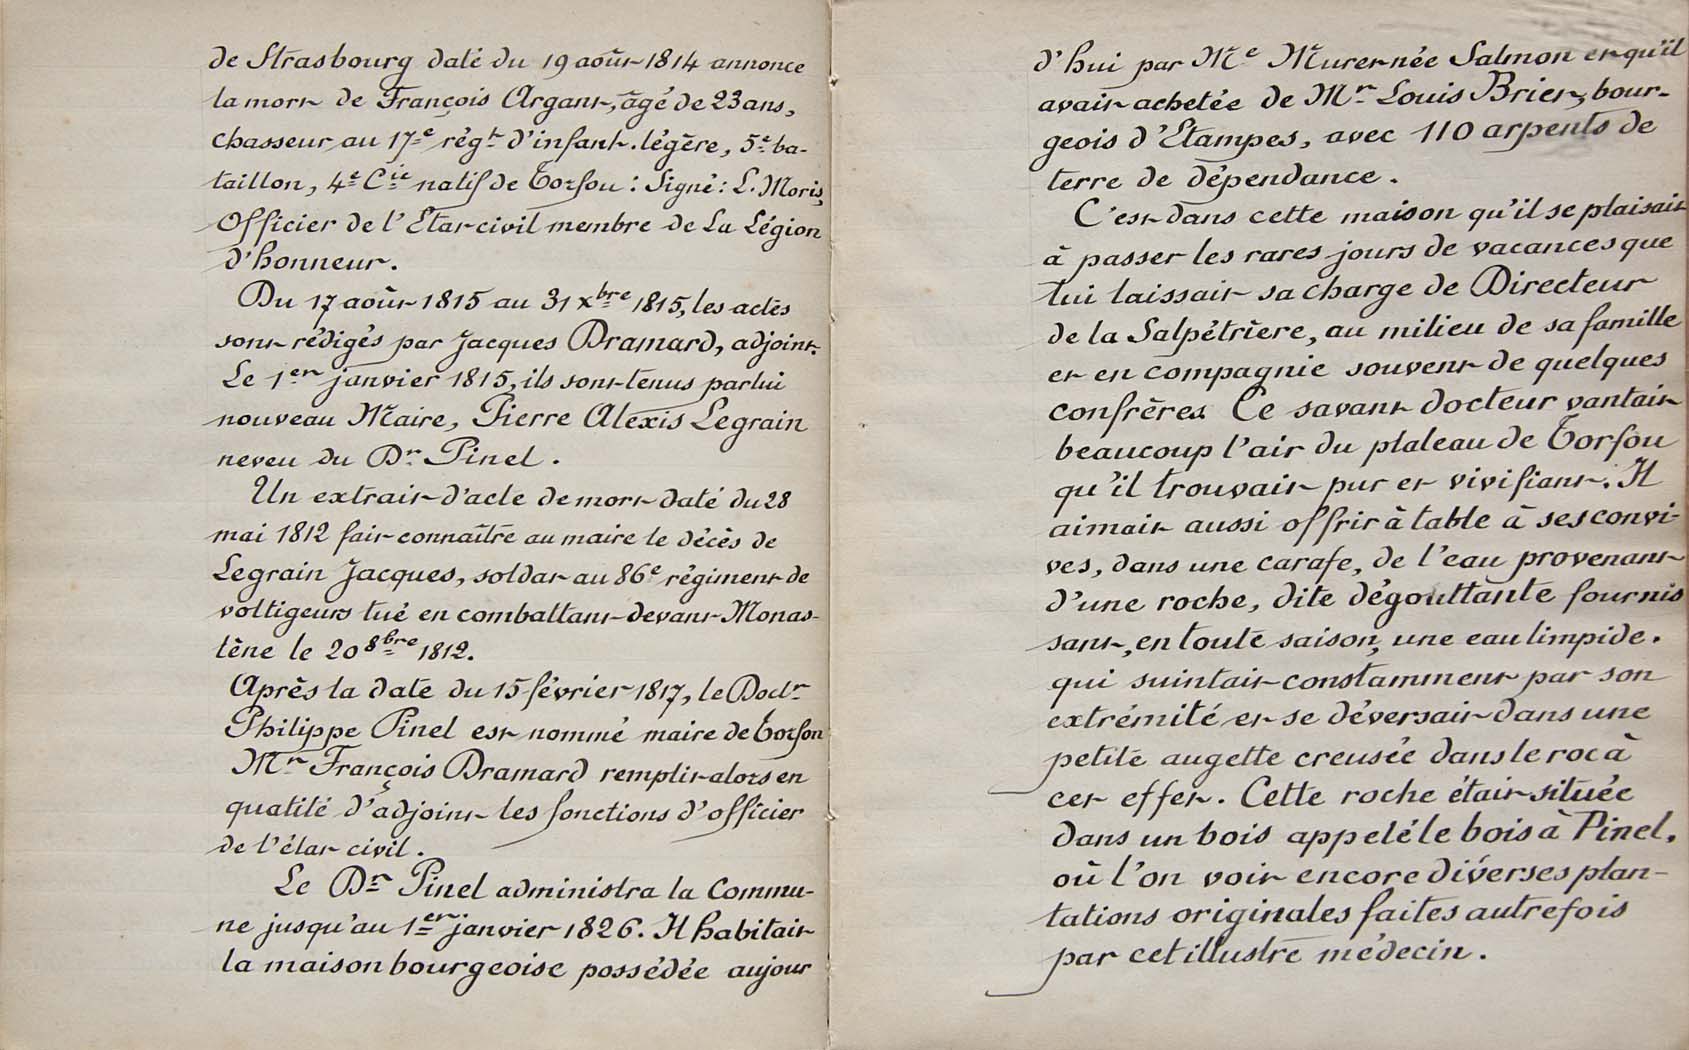 de Strasbourg daté du 19 août 1814 annonce
la mort de François Argant, âgé de 23 ans,
chasseur au 17e régt d'infant. légère, 5e ba-
taillon, 4e Cie natif de Torfou : Signé : L. Moris,
Officier de l'Etat civil membre de La Légion
d'honneur.
Du 17 août 1815 au 31 xbre 1815, les actes
sont rédigés par Jacques Dramard, adjoint.
Le 1er janvier 1815, ils sont tenus par lui
nouveau Maire, Pierre Alexis Legrain
neveu du Dr Pinel.
Un extrait d'acte de mort daté du 28
mai 1812 fait connaître au maire le décès de
Legrain Jacques, soldat au 86e régiment de
voltigeurs tué en combattant devant Monas-
tène le 20 8bre 1812.
Après la date du 15 février 1817, le Doctr
Philippe Pinel est nommé maire de Torfou
Mr François Dramard remplit alors en
qualité d'adjoint les fonctions d'officier
de l'état civil.
Le Dr Pinel administra la Commu-
ne jusqu'au 1er janvier 1826. Il habitait
la maison bourgeoise possédée aujour
d'hui par Me Muret née Salmon et qu'il
avait achetée de Mr Louis Brier, bour-
geois d'Etampes, avec 110 arpents de
terre de dépendance.
C'est dans cette maison qu'il se plaisait
à passer les rares jours de vacances que
lui laissait sa charge de Directeur
de la Salpétrière, au milieu de sa famille
et en compagnie souvent de quelques
confrères. Ce savant docteur vantait
beaucoup l'air du plateau de Torfou
qu'il trouvait pur et vivifiant. Il
aimait aussi offrir à table à ses convi-
ves, dans une carafe, de l'eau provenant
d'une roche, dite dégouttante fournis
sant, en toute saison, une eau limpide.
qui suintait constamment par son
extrémité et se déversait dans une
petite augette creusée dans le roc à
cet effet. Cette roche était située
dans un bois appelé le bois à Pinel,
où l'on voit encore diverses plan-
tations originales faites autrefois
par cet illustre médecin.